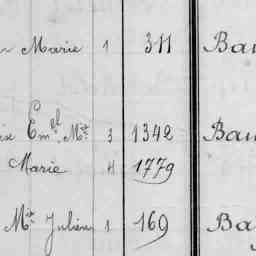 Marie 1 311 Bau
Em.ll Mie 3 1342 Bau
Marie 4 1779
Mie Julien 1 169 Ba